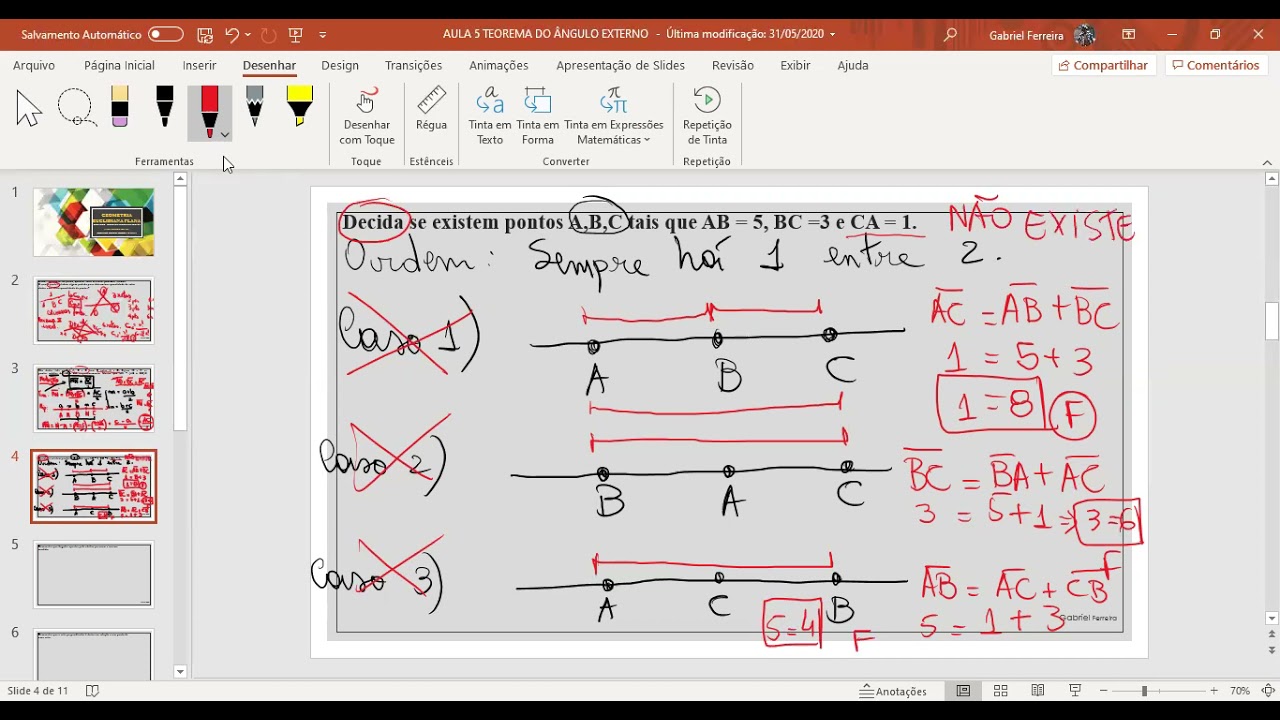 Salvamento Automático
AULA 5 TEOREMA DO ÂNGULO EXTERNO - Última modificação: 31/05/2020
Gabriel Ferreira
Arquivo Página Inicial Inserir Desenhar Design Transições Animações Apresentação de Slides Revisão Exibir Ajuda
Compartilhar Comentários
Desenhar com Toque
Régua
Tinta em Texto
Tinta em Forma
Tinta em Expressões Matemáticas
Repetição de Tinta
Ferramentas Toque Estênceis Converter Repetição
1
2
3
4
5
6
GEOMETRIA
Decida se existem pontos A,B,C tais que AB = 5, BC =3 e CA = 1.
NÃO EXISTE
Ordem: Sempre há 1 entre 2.
Caso 1)
A B C
A̅C̅ = A̅B̅ + B̅C̅
1 = 5+3
1=8 F
Caso 2)
B A C
B̅C̅ = B̅A + A̅C̅
3 = 5+1 ⇒ 3=6
F
Caso 3)
A C B
A̅B̅ = A̅C + C̅B̅
5 = 1 + 3
5=4 F
Gabriel Ferreira
Slide 4 de 11
Anotações
70%